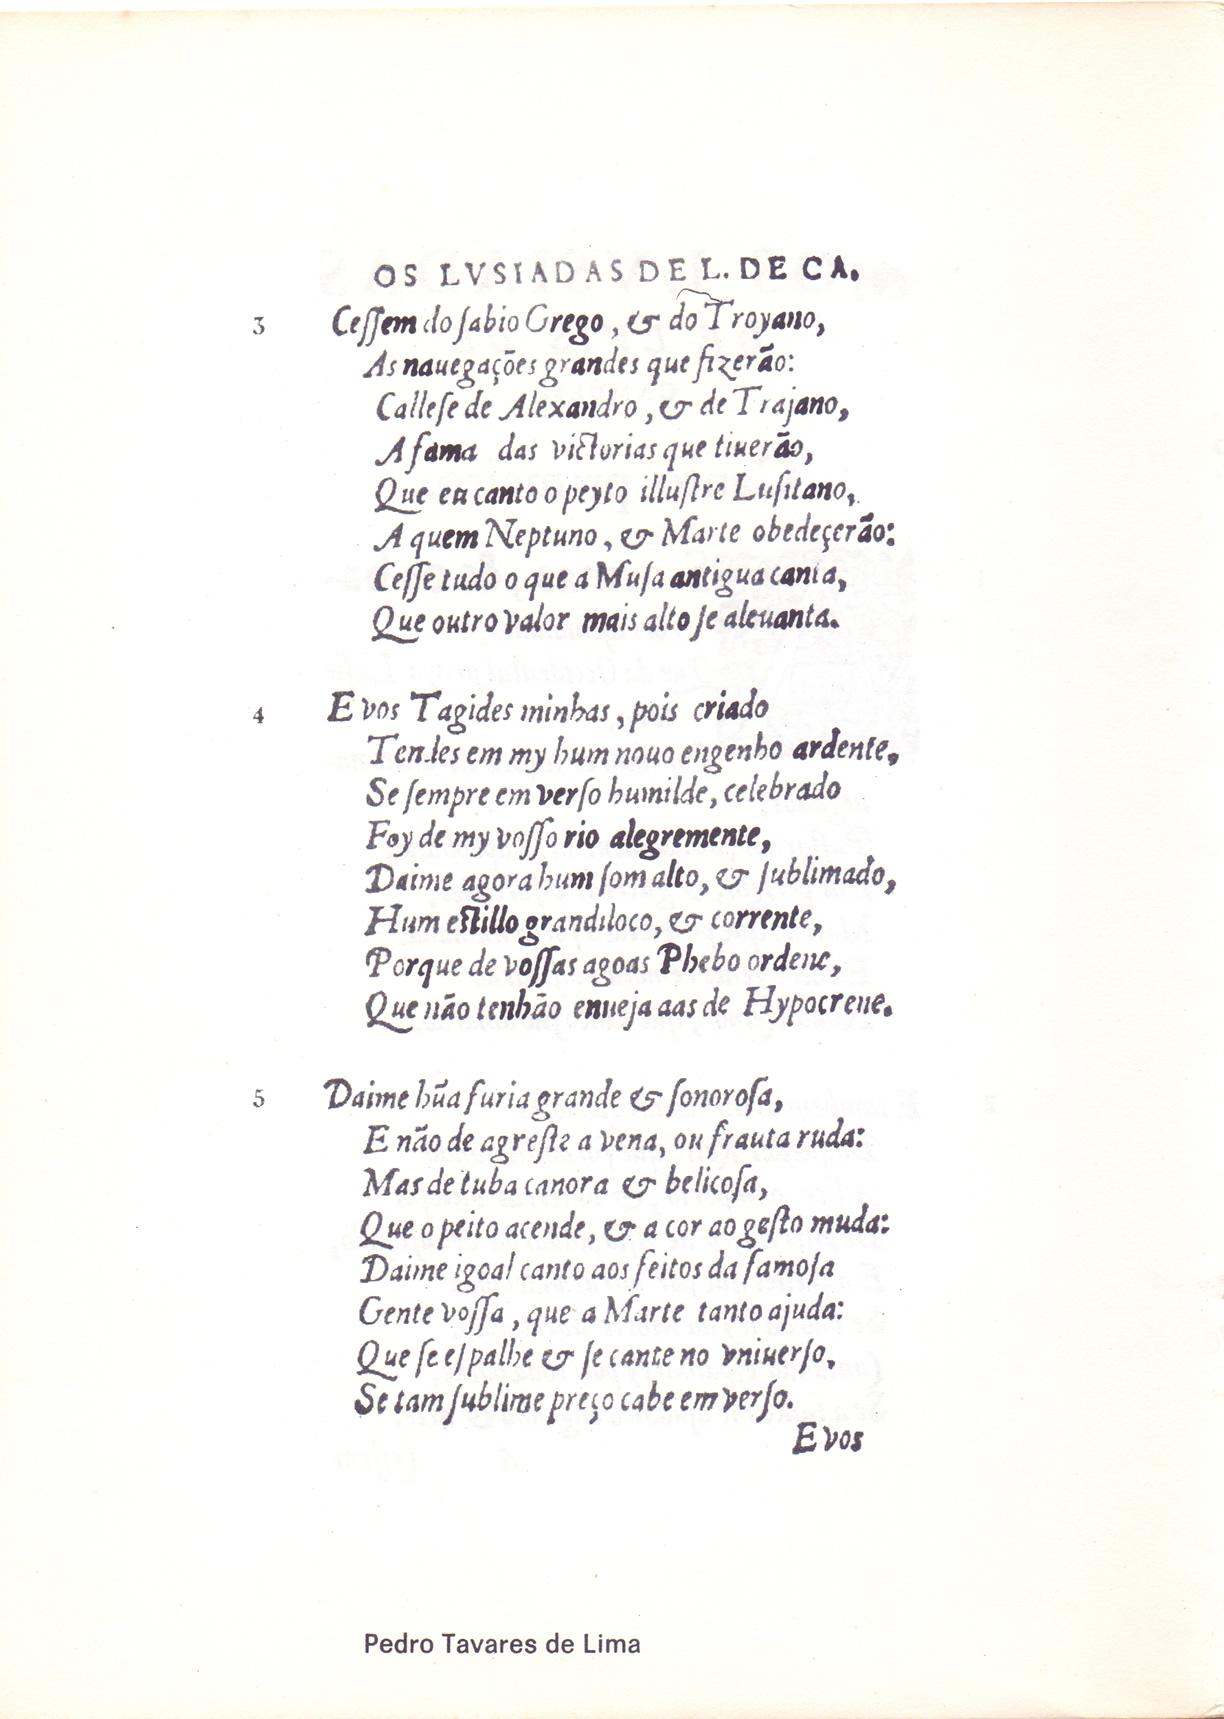 OS LVSIADAS DE L. DE CA.
3 Ceſſem do ſabio Grego, & do Troyano,
As nauegações grandes que fizerão:
Calleſe de Alexandro, & de Trajano,
A fama das victorias que tiuerão,
Que eu canto o peyto illuſtre Luſitano,
A quem Neptuno, & Marte obedeçerão:
Ceſſe tudo o que a Muſa antigua canta,
Que outro valor mais alto ſe aleuanta.
4 E vos Tagides minhas, pois criado
Tendes em my hum nouo engenho ardente,
Se ſempre em verſo humilde, celebrado
Foy de my voſſo rio alegremente,
Daime agora hum ſom alto, & ſublimado,
Hum eſtillo grandiloco, & corrente,
Porque de voſſas agoas Phebo ordene,
Que não tenhão enueja aas de Hypocrene.
5 Daime hũa furia grande & ſonoroſa,
E não de agreſte a vena, ou frauta ruda:
Mas de tuba canora & belicoſa,
Que o peito acende, & a cor ao geſto muda:
Daime igoal canto aos feitos da famoſa
Gente voſſa, que a Marte tanto ajuda:
Que ſe eſpalhe & ſe cante no vniuerſo,
Se tam ſublime preço cabe em verſo.
E vos
Pedro Tavares de Lima